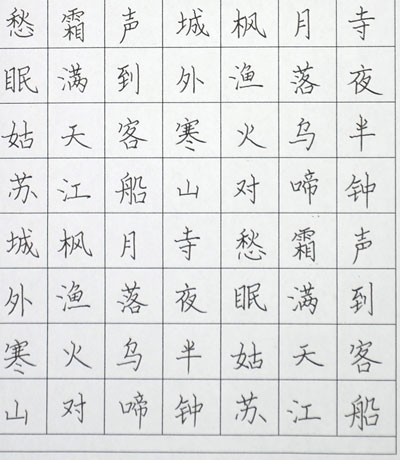 愁霜声城枫月寺
眠满到外渔落夜
姑天客寒火乌半
苏江船山对啼钟
城枫月寺愁霜声
外渔落夜眠满到
寒火乌半姑天客
山对啼钟苏江船